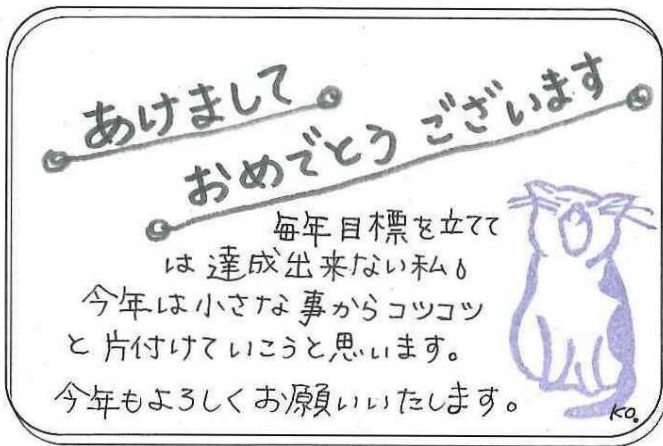 あけまして
おめでとう ございます
毎年目標を立てて
は達成出来ない私。
今年は小さな事からコツコツ
と片付けていこうと思います。
今年もよろしくお願いいたします。
KO.